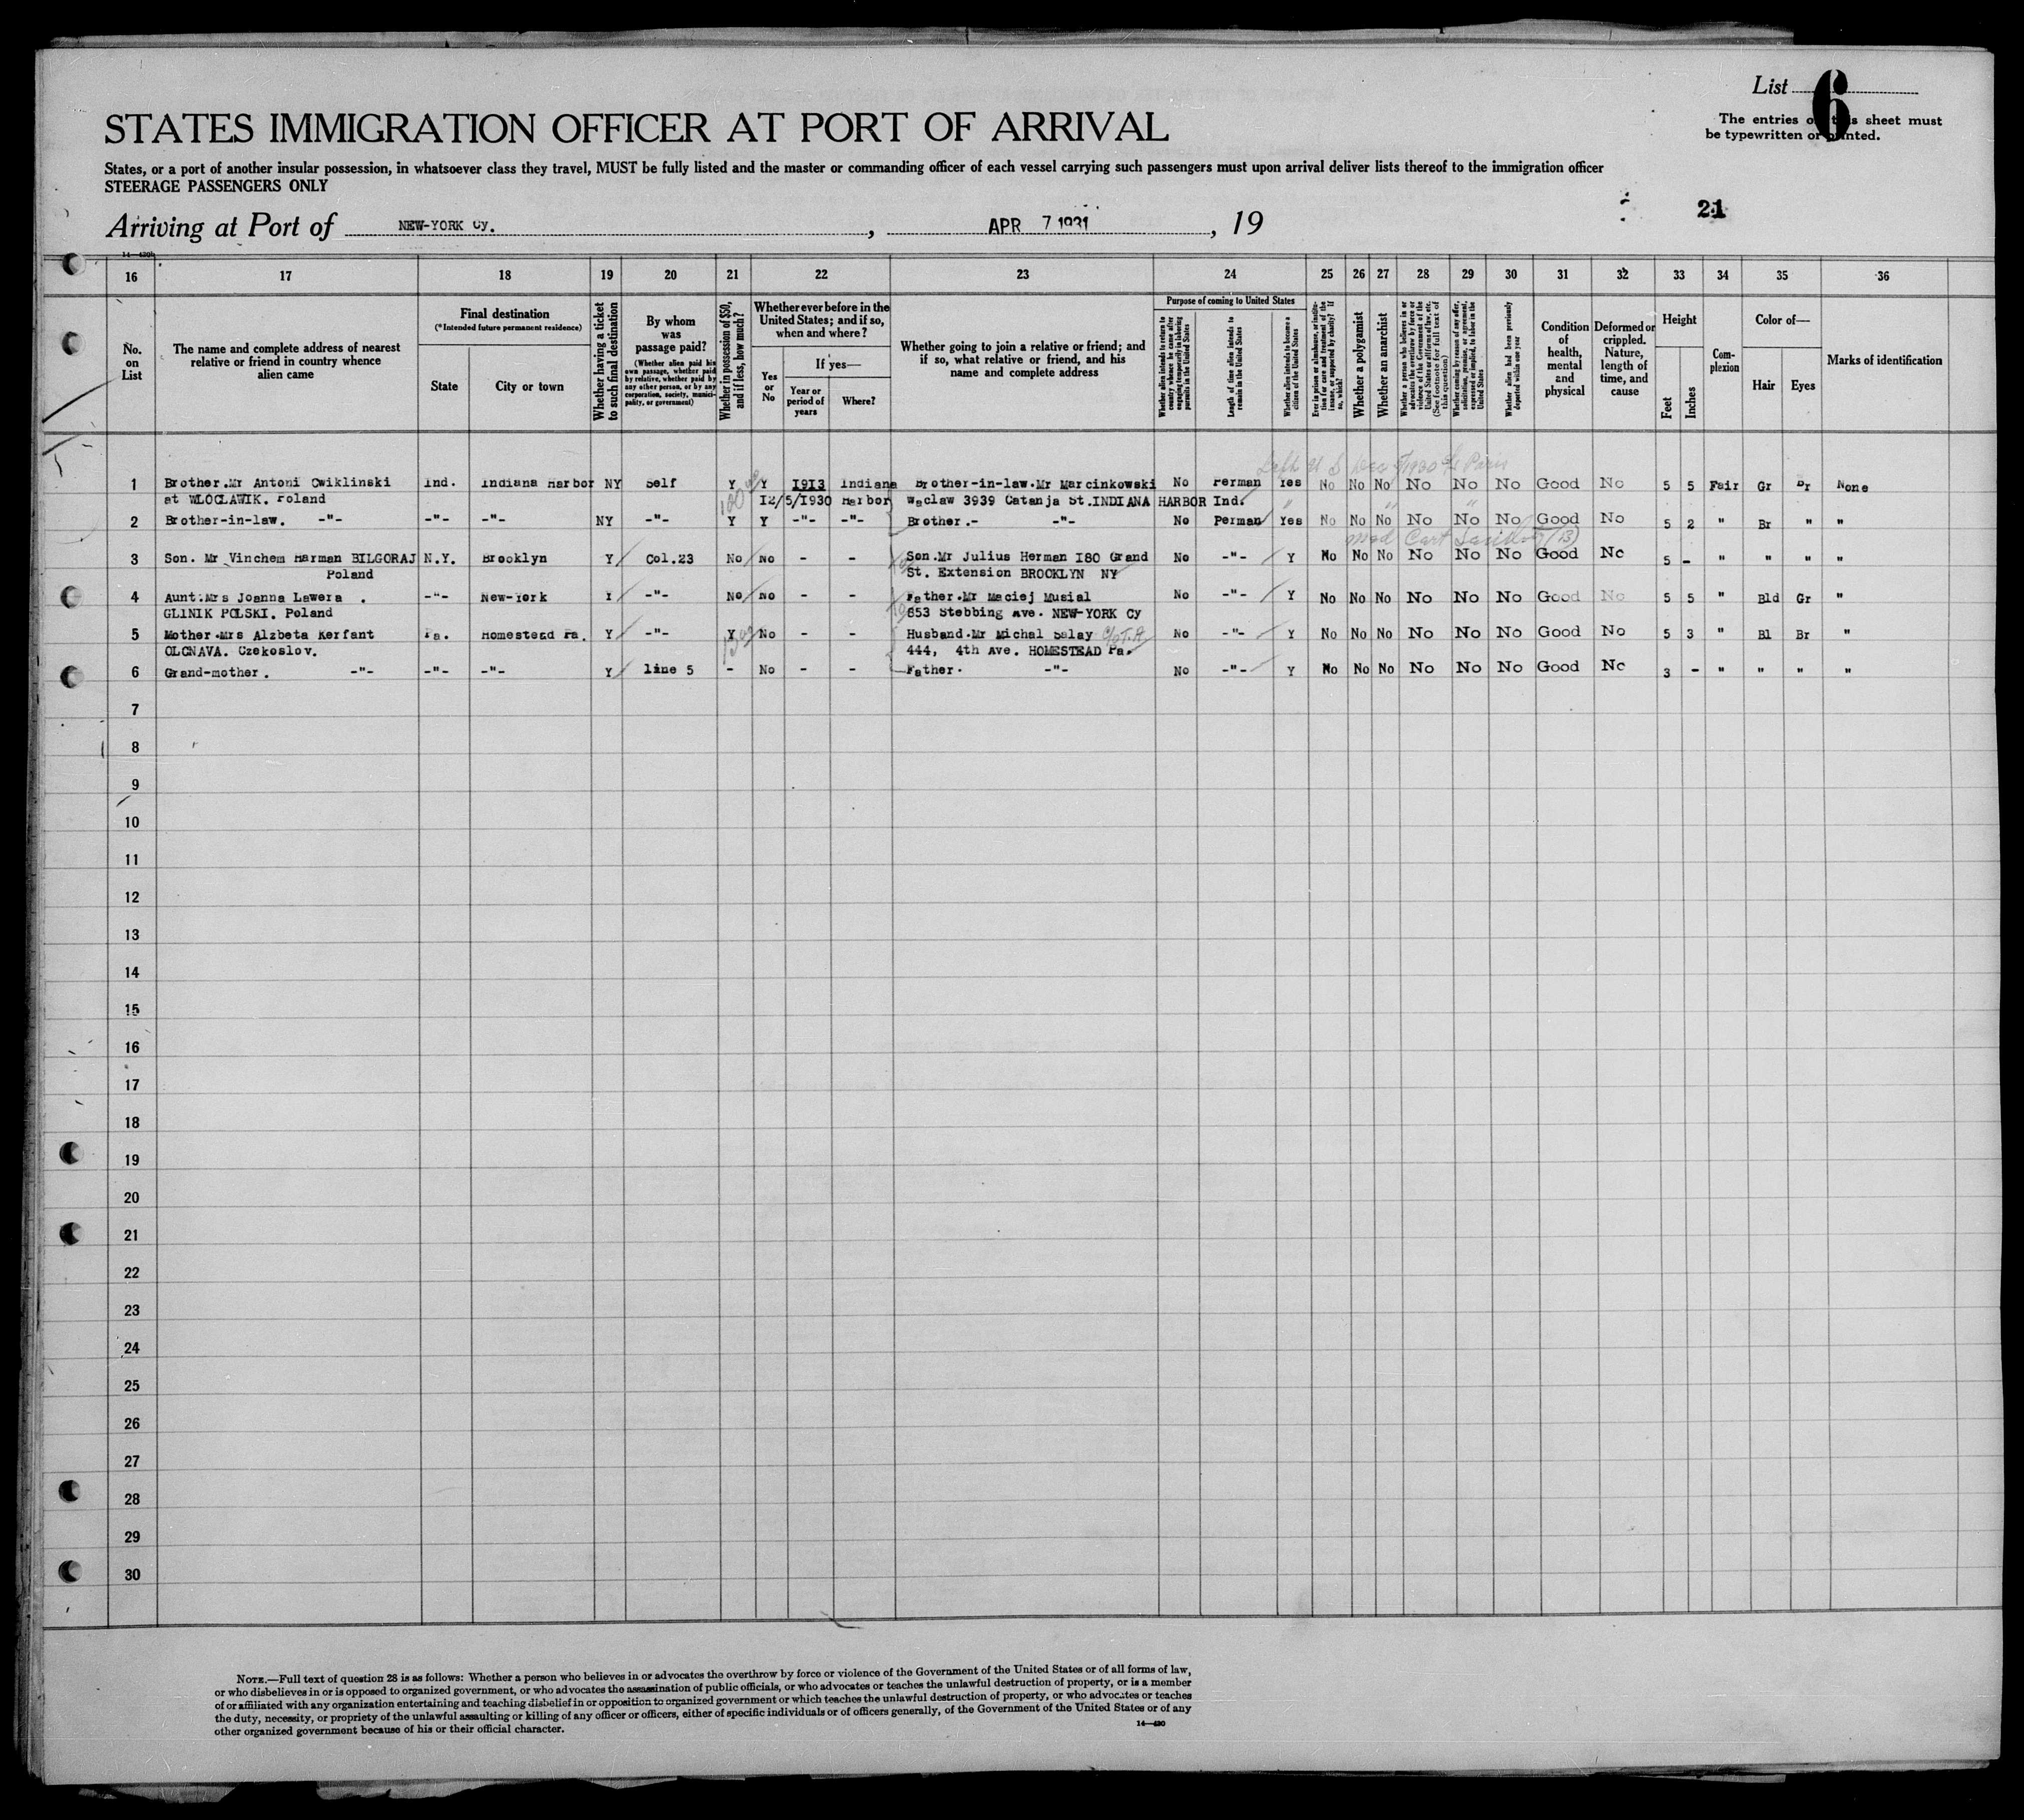 List 6
The entries on this sheet must
be typewritten or printed.
STATES IMMIGRATION OFFICER AT PORT OF ARRIVAL
States, or a port of another insular possession, in whatsoever class they travel, MUST be fully listed and the master or commanding officer of each vessel carrying such passengers must upon arrival deliver lists thereof to the immigration officer
STEERAGE PASSENGERS ONLY
21
Arriving at Port of NEW-YORK Cy. , APR 7 1931 , 19
16 17 18 19 20 21 22 23 24 25 26 27 28 29 30 31 32 33 34 35 36
No. on List
The name and complete address of nearest relative or friend in country whence alien came
Final destination
(*Intended future permanent residence)
State
City or town
Whether having a ticket to such final destination
By whom was passage paid?
(Whether alien paid his own passage, whether paid by relative, whether paid by any other person, or by any corporation, society, municipality, or government)
Whether in possession of $50, and if less, how much?
Whether ever before in the United States; and if so, when and where?
Yes or No
If yes—
Year or period of years
Where?
Whether going to join a relative or friend; and if so, what relative or friend, and his name and complete address
Purpose of coming to United States
Whether alien intends to return to country whence he came after engaging temporarily in laboring pursuits in the United States
Length of time alien intends to remain in the United States
Whether alien intends to become a citizen of the United States
Ever in prison or almshouse, or institution for care and treatment of the insane, or supported by charity? If so, which?
Whether a polygamist
Whether an anarchist
Whether a person who believes in or advocates the overthrow by force or violence of the Government of the United States or all forms of law, etc. (See footnote for full text of this question)
Whether coming by reason of any offer, solicitation, promise, or agreement, expressed or implied, to labor in the United States
Whether alien had been previously deported within one year
Condition of health, mental and physical
Deformed or crippled. Nature, length of time, and cause
Height
Feet
Inches
Complexion
Color of—
Hair
Eyes
Marks of identification
Left U S Dec 5/1930 Paris
1 Brother.Mr Antoni Cwiklinski Ind. Indiana Harbor NY Self Y Y 1913 Indiana Brother-in-law.Mr Marcinkowski No Perman Yes No No No No No No Good No 5 5 Fair Gr Br None
at WLOCLAWIK. Poland 100 I2/5/1930 Harbor Waclaw 3939 Catanja St.INDIANA HARBOR Ind.
2 Brother-in-law. -"- -"- -"- NY -"- Y Y -"- -"- Brother.- -"- No Perman Yes No No No No No No Good No 5 2 " Br " "
Med Cert
3 Son. Mr Vinchem Herman BILGORAJ N.Y. Brooklyn Y Col.23 No No - - Son.Mr Julius Herman I80 Grand No -"- Y No No No No No No Good No 5 - " " " "
Poland St. Extension BROOKLYN NY
4 Aunt.Mrs Joanna Lawera . -"- New-York Y -"- No No - - Father.Mr Maciej Musial No -"- Y No No No No No No Good No 5 5 " Bld Gr "
GLINIK POLSKI. Poland 653 Stebbing Ave. NEW-YORK Cy
5 Mother.Mrs Alzbeta Kerfant Pa. Homestead Pa. Y -"- Y No - - Husband.Mr Michal Salay No -"- Y No No No No No No Good No 5 3 " Bl Br "
OLCNAVA. Czekoslov. 444, 4th Ave. HOMESTEAD Pa.
6 Grand-mother. -"- -"- -"- Y line 5 - No - - Father. -"- No -"- Y No No No No No No Good No 3 - " " " "
7
8
9
10
11
12
13
14
15
16
17
18
19
20
21
22
23
24
25
26
27
28
29
30
NOTE.—Full text of question 28 is as follows: Whether a person who believes in or advocates the overthrow by force or violence of the Government of the United States or of all forms of law,
or who disbelieves in or is opposed to organized government, or who advocates the assassination of public officials, or who advocates or teaches the unlawful destruction of property, or is a member
of or affiliated with any organization entertaining and teaching disbelief in or opposition to organized government or which teaches the unlawful destruction of property, or who advocates or teaches
the duty, necessity, or propriety of the unlawful assaulting or killing of any officer or officers, either of specific individuals or of officers generally, of the Government of the United States or of any
other organized government because of his or their official character.
14—430